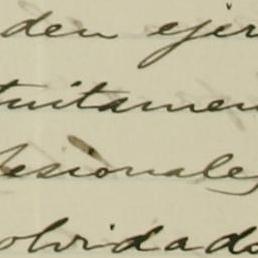 den ejer
tuitamen
esionales
olvidado